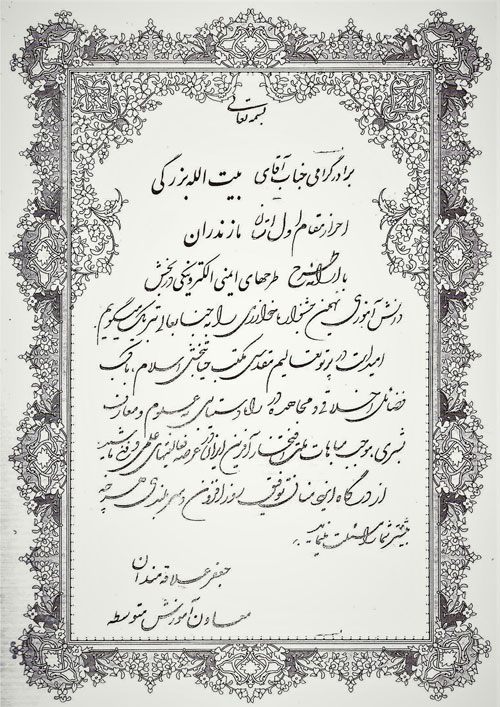 بسمه تعالی
برادر گرامی جناب آقای بیت الله بزرگی
احراز مقام اول استان مازندران
با ارائه طرح طرحهای ایمنی الکترونیکی در بخش
دانش آموزی نهمین جشنواره خوارزمی را به جنابعالی تبریک میگویم.
امید است در پرتو تعالیم مقدس مکتب حیاتبخش اسلام، با کسب
فضائل اخلاقی و مجاهده در راستای علوم و معارف
بشری موجب مباهات ملت افتخار آفرین ایران در عرصه فعالیتهای علمی و فنی باشید
از درگاه ایزد منان توفیق روز افزون و بهره مندی هر چه
بیشتر شما را مسئلت مینماید.
جعفر علاقه مندان
معاون آموزش متوسطه